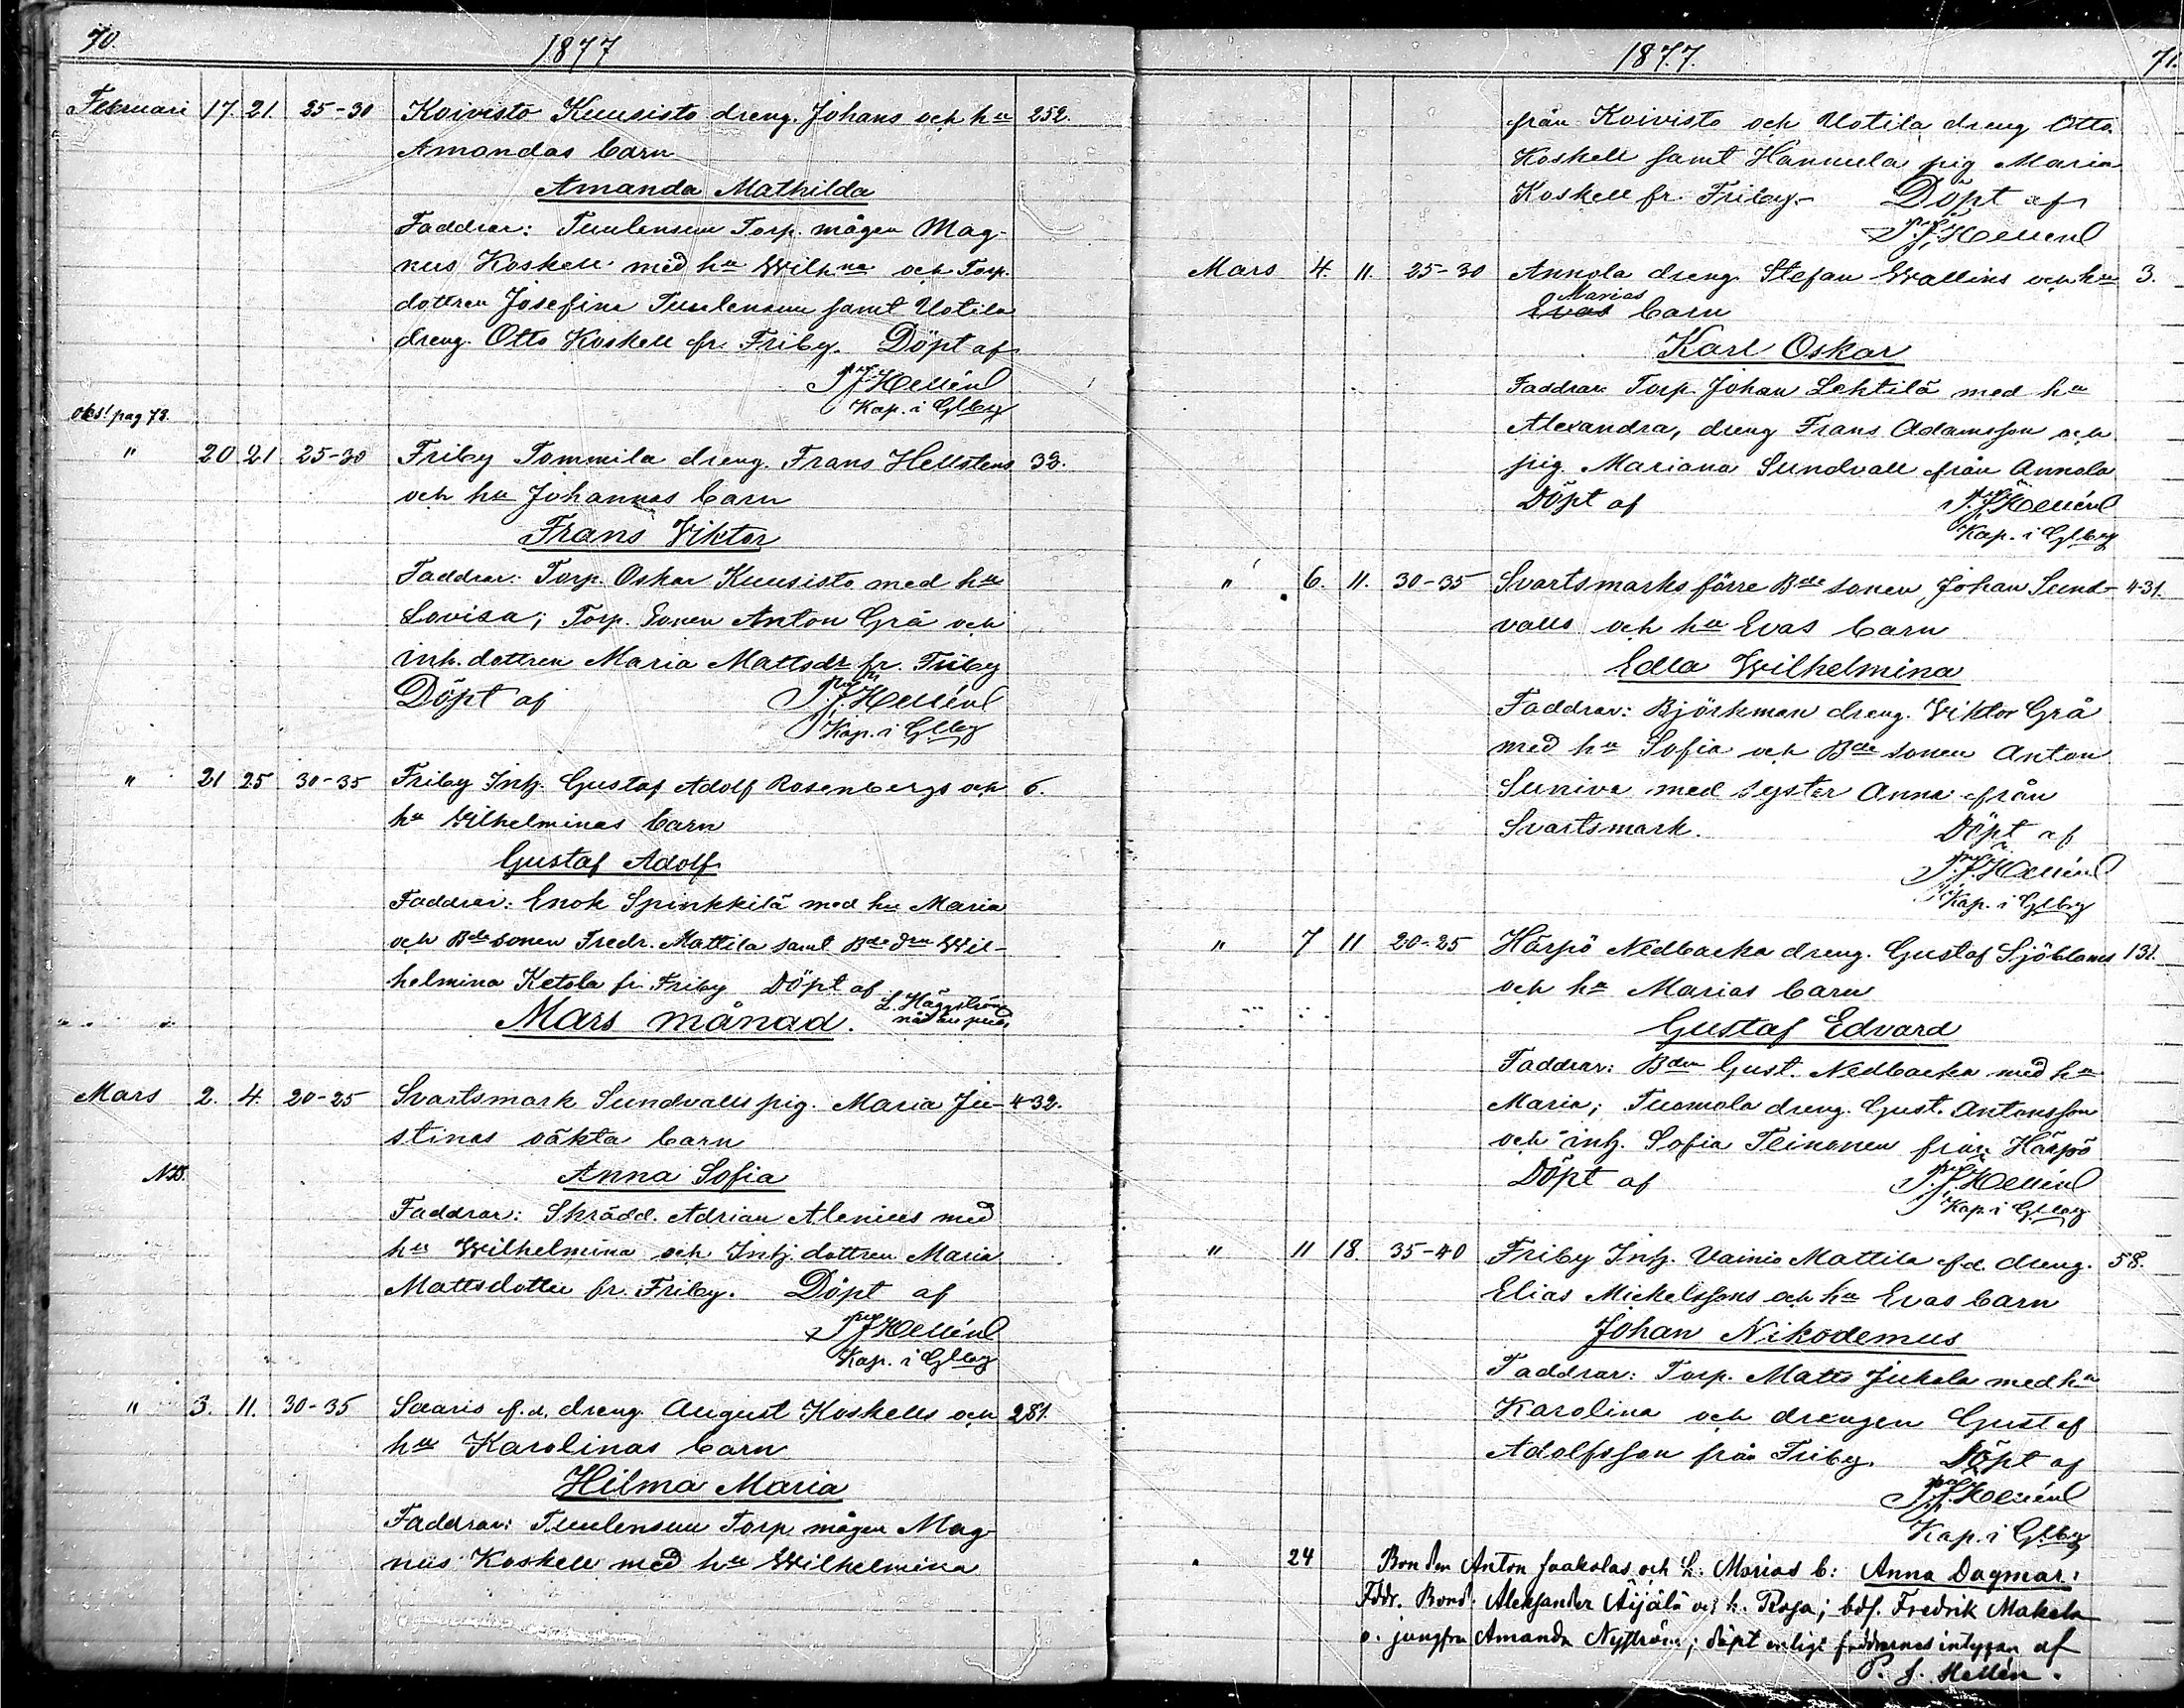 70.
1877
Februari 17. 21. 25-30 Koivisto Kuusisto dreng. Johans och hu 252.
Amandas barn
Amanda Mathilda
Faddrar: Tuulensuu Torp. mågen Mag-
nus Koskell med hu Wilhna och Torp.
dottren Josefina Tuulensuu samt Uotila
dreng. Otto Koskell fr. Friby. Döpt af
P.J. Hellén
Kap. i Glby
obs! pag 73.
" 20 21 25-30 Friby Tommila dreng. Frans Hellstens 32.
och hu Johannas barn
Frans Viktor
Faddrar: Torp. Oskar Kuusisto med hu
Lovisa; Torp. Sonen Anton Grå och
inh. dottren Maria Mattsdr fr. Friby
Döpt af P.J. Hellén
Kap. i Glby
" 21 25 30-35 Friby Inh. Gustaf Adolf Rosenbergs och 6.
hu Vilhelminas barn
Gustaf Adolf
Faddrar: Enok Spinkkilä med hu Maria
och Bde sonen Fredr. Mattila samt Bde dra Wil-
helmina Ketola fr. Friby Döpt af
L. Häggström
Mars månad.
Mars 2. 4. 20-25 Svartsmark Sundvalls pig. Maria Ju- 432.
stinas oäkta barn
NB. Anna Sofia
Faddrar: Skrädd. Adrian Alenius med
hu Wilhelmina och Inh. dottren Maria
Mattsdotter fr. Friby. Döpt af
P.J. Hellén
Kap. i Glby
" 3. 11. 30-35 Saaris f.d. dreng August Koskells och 281.
hu Karolinas barn
Hilma Maria
Faddrar: Tuulensuu Torp. mågen Mag-
nus Koskell med hu Wilhelmina
1877.
71.
från Koivisto och Uotila dreng Otto
Koskell samt Hannula pig Maria
Koskell fr. Friby. Döpt af
P.J. Hellén
Mars 4. 11. 25-30 Annola dreng Stefan Wallins och hu 3.
Marias
Evas barn
Karl Oskar
Faddrar Torp. Johan Lehtilä med hu
Alexandra, dreng Frans Adamsson och
pig. Mariana Sundvall från Annola
Döpt af P.J. Hellén
Kap. i Glby
" 6. 11. 30-35 Svartsmarks förre Bde sonen Johan Sund- 431.
valls och hu Evas barn
Edla Wilhelmina
Faddrar: Björkman dreng. Viktor Grå
med hu Sofia och Bde sonen Anton
Suniva med syster Anna från
Svartsmark. Döpt af
P.J. Hellén
Kap. i Glby
" 7 11 20-25 Härpö Nedbacka dreng. Gustaf Sjöbloms 131.
och hu Marias barn
Gustaf Edvard
Faddrar: Bden Gust. Nedbacka med hu
Maria; Tuomola dreng. Gust. Antonsson
och inh. Sofia Teinonen från Härpö
Döpt af P.J. Hellén
Kap. i Glby
" 11 18. 35-40 Friby Inh. Vainio Mattila f.d. dreng. 58.
Elias Mickelssons och hu Evas barn
Johan Nikodemus
Faddrar: Torp. Matts Jukola med hu
Karolina och drengen Gustaf
Adolfsson från Friby. Döpt af
P.J. Hellén
Kap. i Glby
24 Bonden Anton Jaakolas och h. Marias b: Anna Dagmar;
Fddr. Bond. Aleksander Äijälä och h. Rosa; bds. Fredrik Makela
o. jungfru Amanda Nyström; döpt enligt faddrarnes intygan af
P. J. Hellén.